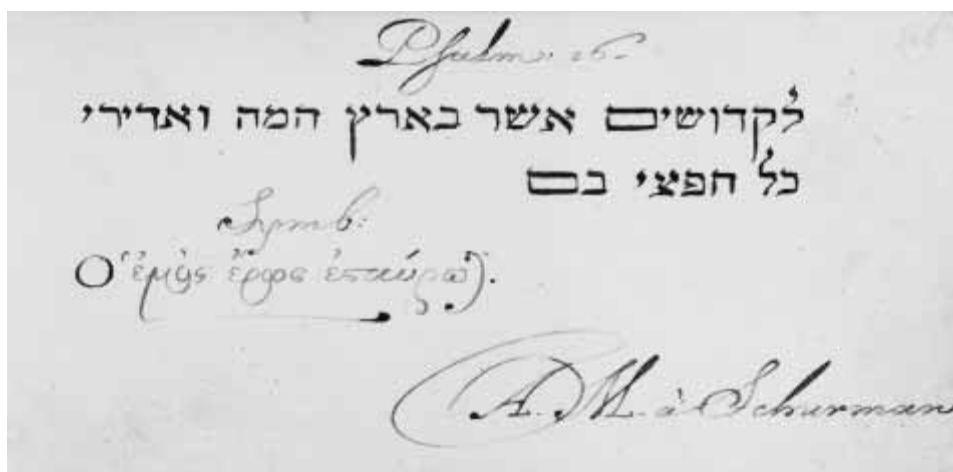 Psalm. 16.
לקדושים אשר בארץ המה ואדירי
כל חפצי בם
Symb:
Ὁ ἐμὸς ἔρως ἐσταύρω).
A. M. à Schurman